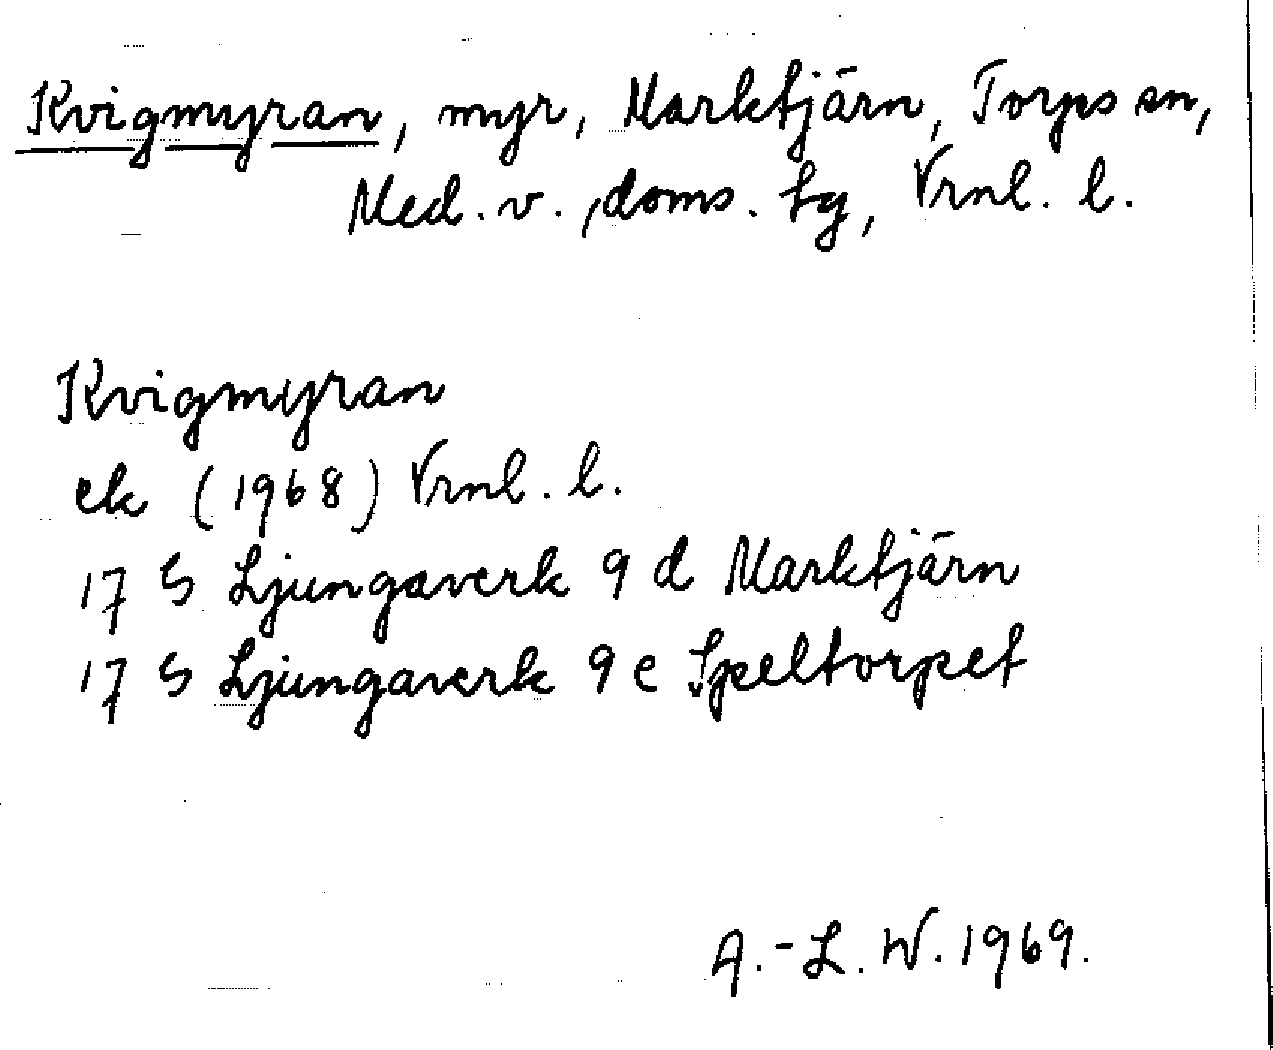 Kvigmyran, myr, Marktjärn, Torps sn,
Med. v., doms. tg, Vrnl. l.
Kvigmyran
ek (1968) Vrnl. l.
17 G Ljungaverk 9 d Marktjärn
17 G Ljungaverk 9 e Speltorpet
A.-L. W. 1969.